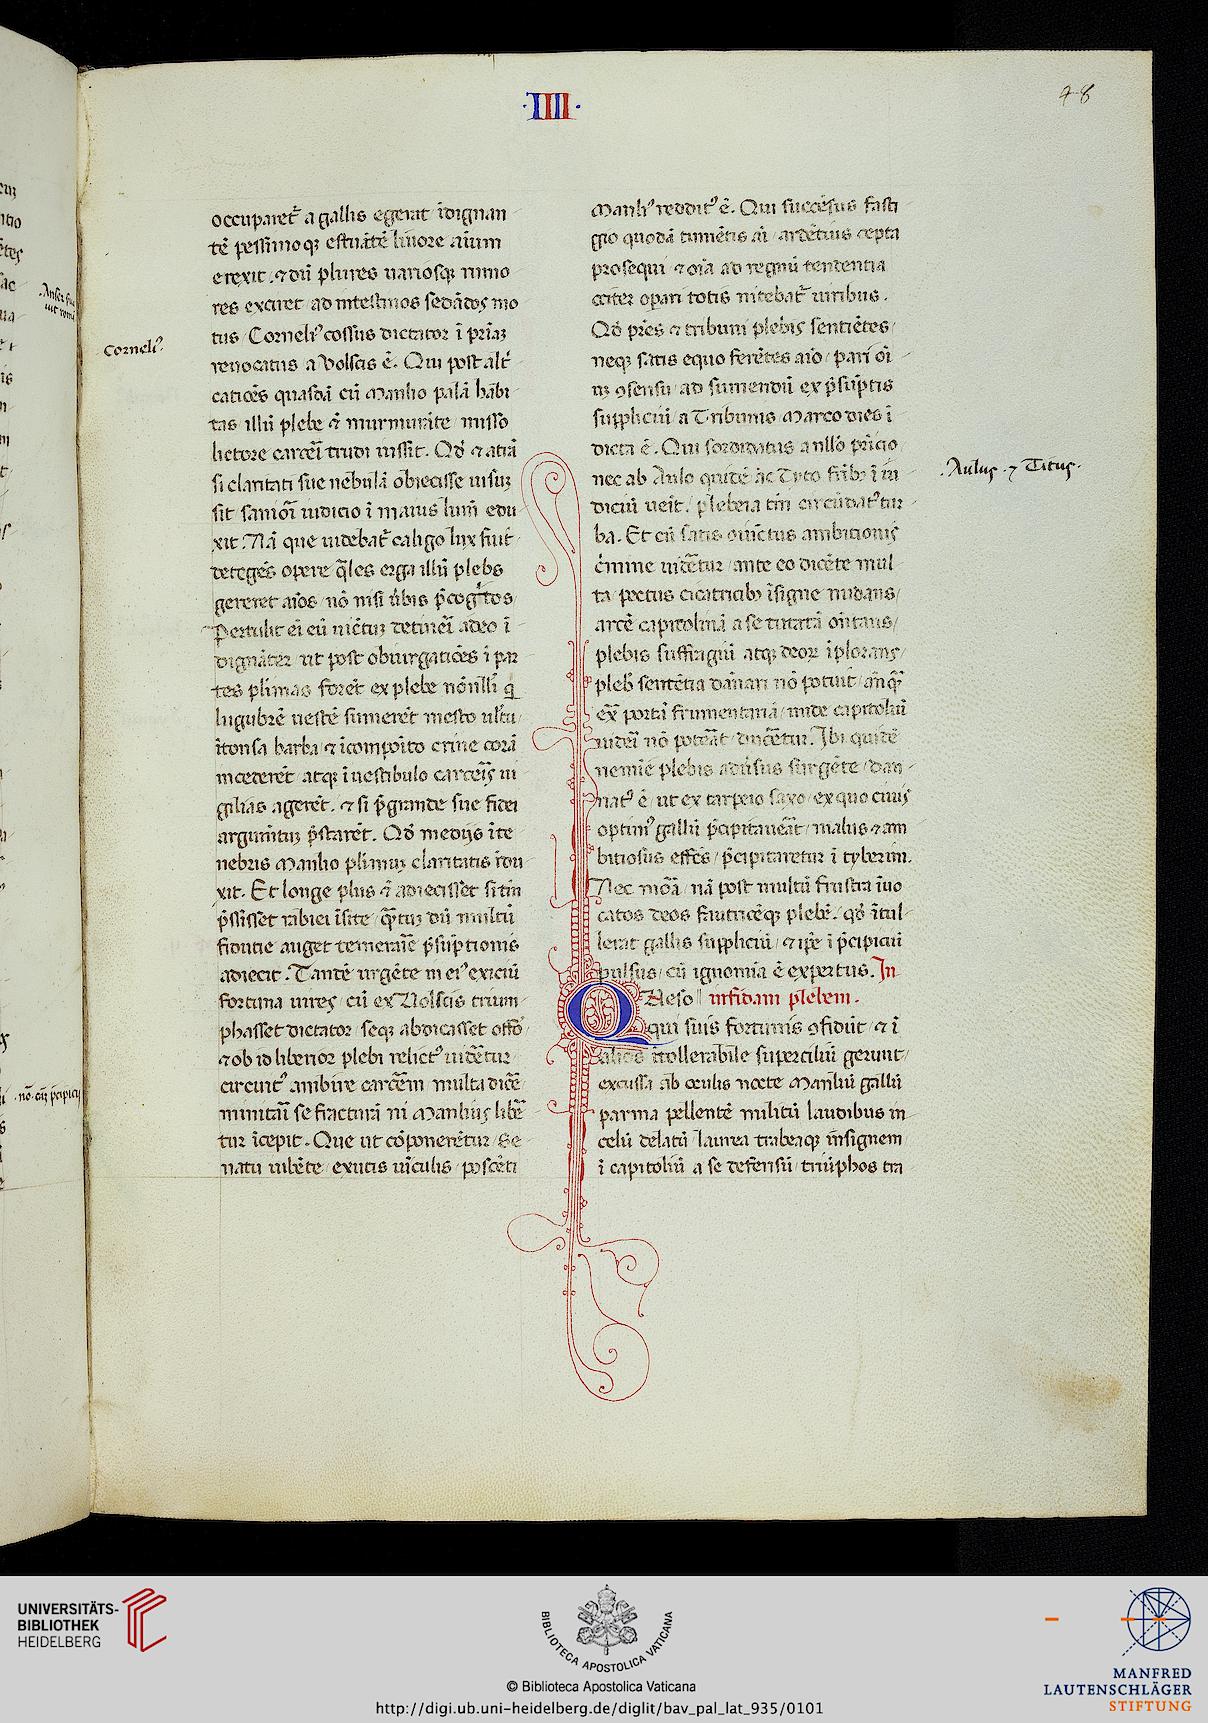 ·IIII·
48
occuparet᷑ a gallis egerat ĩdignan
tẽ pessimoqꝫ estuãtẽ liuore aĩum
erexit. ⁊ dũ plures uariosqꝫ rumo
res exciret ad intestinos sedãdos mo
tus Corneliꝰ cossus dictator ĩ priãꝫ
reuocatus a Volscis ẽ. Qui post alt᷑
catiões quasdã cũ Manlio palã habi
tas illũ plebe ẽ murmurãte misso
lictore carcerĩ trudi iussit. Qđ ⁊ atrã
si claritati sue nebulã obiecisse uisuꝫ
sit sanioĩ iudicio ĩ maius lumẽ edu
xit. Nã que uidebat᷑ caligo lux fuit
detegẽs opere q̃les erga illũ plebs
gereret aĩos nõ nisi ủbis p̃cogĩtos
Pertulit eĩ eũ uĩctuꝫ detineri adeo ĩ
dignãter ut post obiurgatiões ĩ par
tes plimas foret ex plebe nõnulli q̇
lugubrẽ uestẽ sumerẽt mesto uultu
ĩtonsa barba ⁊ ĩcompoĩto crine corã
incederẽt atqꝫ ĩ uestibulo carceris ui
gilias agerẽt. ⁊ si p̃grande sue fidei
argumẽtuꝫ p̃starẽt. Qđ medijs ĩte
nebris Manlio plimuꝫ claritatis ĩdu
xit. Et longe plus ẽ adiecisset si tm̃
p̃ssisset rabiei ĩsite q̃tuꝫ dũ multũ
fidutie auget temerarie p̃sũptionis
adiecit. Tantẽ urgẽte in eiꝰ exiciũ
fortuna uires cũ ex Volscis trium
phasset dictator seqꝫ abdicasset offõ
⁊ ob id liberior plebi relictꝰ uiderẽtur
circuitꝰ ambire carcerẽm multa dicẽ
minitari se fracturã ni Manlius liberẽ
tur ĩcepit. Que ut cõponerẽtur Se
natu iubẽte exutis uĩculis poscẽti
Manliꝰ redditꝰ ẽ. Qui succẽsus fasti
gio quodã tumẽtis aĩ ardẽtius cepta
prosequi ⁊ oĩa ad regnũ tendentia
acriter opari totis nitebat᷑ uiribus.
Qđ pr̃es ⁊ tribuni plebis sentiẽtes
neqꝫ satis equo ferẽtes aĩo pari oĩ
uꝫ ꝯsensu ad sumendũ ex p̃sũptis
suppliciũ a Tribunis Marco dies ĩ
dicta ẽ. Qui sordidatus a nullo pr̃icio
nec ab Aulo quidẽ ac Tyto fr̃ibꝫ ĩ iu
diciũ uenit. plebeia tm̃ circũdatꝰ tur
ba. Et cũ satis ꝯuictus ambitionis
crimine uideretur ante eo dicẽte mul
ta pectus cicatricibꝫ ĩsigne nudans
arcẽ capitolinã a se tutatã oñtans
plebis suffragiũ atqꝫ deoꝝ ĩplorans
pleb᷑ sentẽtia dãnari nõ potuit añ q̃ȝ
ex̃ portã frumentariã unde capitoliũ
uideri nõ poterat ducẽtur. Ibi quidẽ
nemine plebis aduersus surgẽte dan
natꝰ ẽ ut ex tarpeio saxo ex quo ciuis
optimꝰ gallũ p̃cipitauerãt malus ⁊ am
bitiosus effẽs p̃cipitaretur ĩ tyberim.
Nec morã nã post multũ frustra ĩuo
catos deos fautricẽqꝫ plebẽ. qđ ĩtul
lerat gallis suppliciũ ⁊ ip̃e ĩ p̃cipiciũ
pulsus cũ ignomĩa ẽ expertus. In
QVeso infidam plebem.
qui suis fortunis ꝯfidũt ⁊ ĩ
alios ĩtollerabile superciliũ gerunt
excussa ab oculis nocte Manliũ gallũ
parma pellentẽ militũ laudibus in
celũ delatũ laurea trabeaqꝫ insignem
ĩ capitoliũ a se defensũ triũphos tra
Corneliꝰ.
·Aulus· ⁊ Titus·
UNIVERSITÄTS-
BIBLIOTHEK
HEIDELBERG
BIBLIOTECA APOSTOLICA VATICANA
© Biblioteca Apostolica Vaticana
http://digi.ub.uni-heidelberg.de/diglit/bav_pal_lat_935/0101
MANFRED
LAUTENSCHLÄGER
STIFTUNG